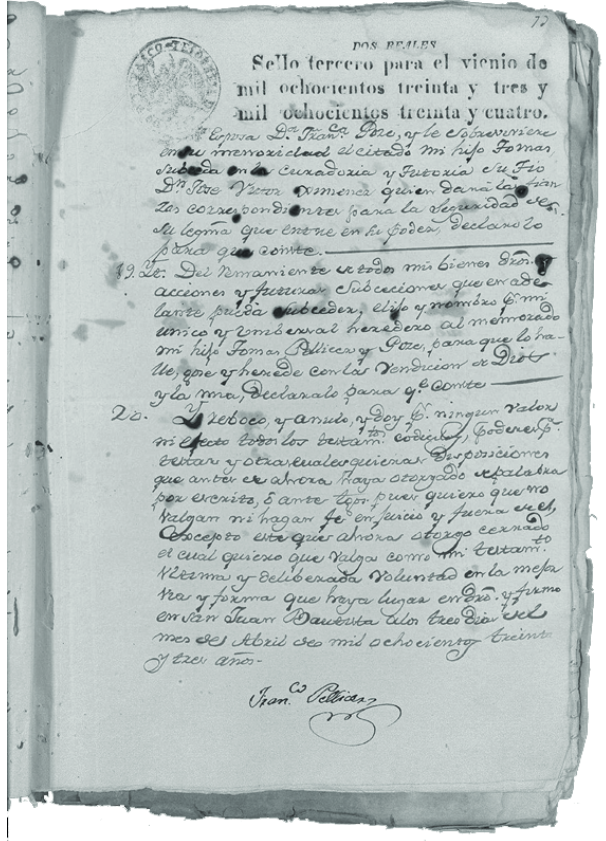 72
DOS REALES
Sello tercero para el vienio de
mil ochocientos treinta y tres y
mil ochocientos treinta y cuatro.
Esposa Dª. Franca. Poze, y le sobreviniere
en su memoridad el citado mi hijo Tomas,
subceda en la curadoria y tutoria su Tio
Dn. Jose Victor Ximenez quien dará las fian
zas correspondiente para la seguridad de
su legma que entre en su poder, declarolo
para que conste.
19. Del remaniente de todos mis bienes dros.
acciones y futuras subceciones que en ade
lante pueda subceder, elijo y nombro pr. mi
unico y umberval heredero al memorado
mi hijo Tomas Pellicer y Poze, para que lo ha
lle, gose y herede con las Vendicion de Dios
y la mia, declaralo para qe. conste
20. Y reboco, y anulo, y doy pr. ningun valor
ni efecto todos los testamtos. codicilos, poderes pa.
testar y otras cuales quieras disposiciones
que antes de ahora haya otorgado de palabra
por escrito, ó ante tgos. pues quiero que no
valgan ni hagan fe en juicio y fuera de el,
excepto este que ahora otorgo cerrado
el cual quiero que valga como mi testamto.
Ultima y deliberada voluntad en la mejor
via y forma que haya lugar en dro. y firmo
en San Juan Bautista a los tres dias del
mes de Abril de mil ochocientos treinta
y tres años.
Franco. Pellicer